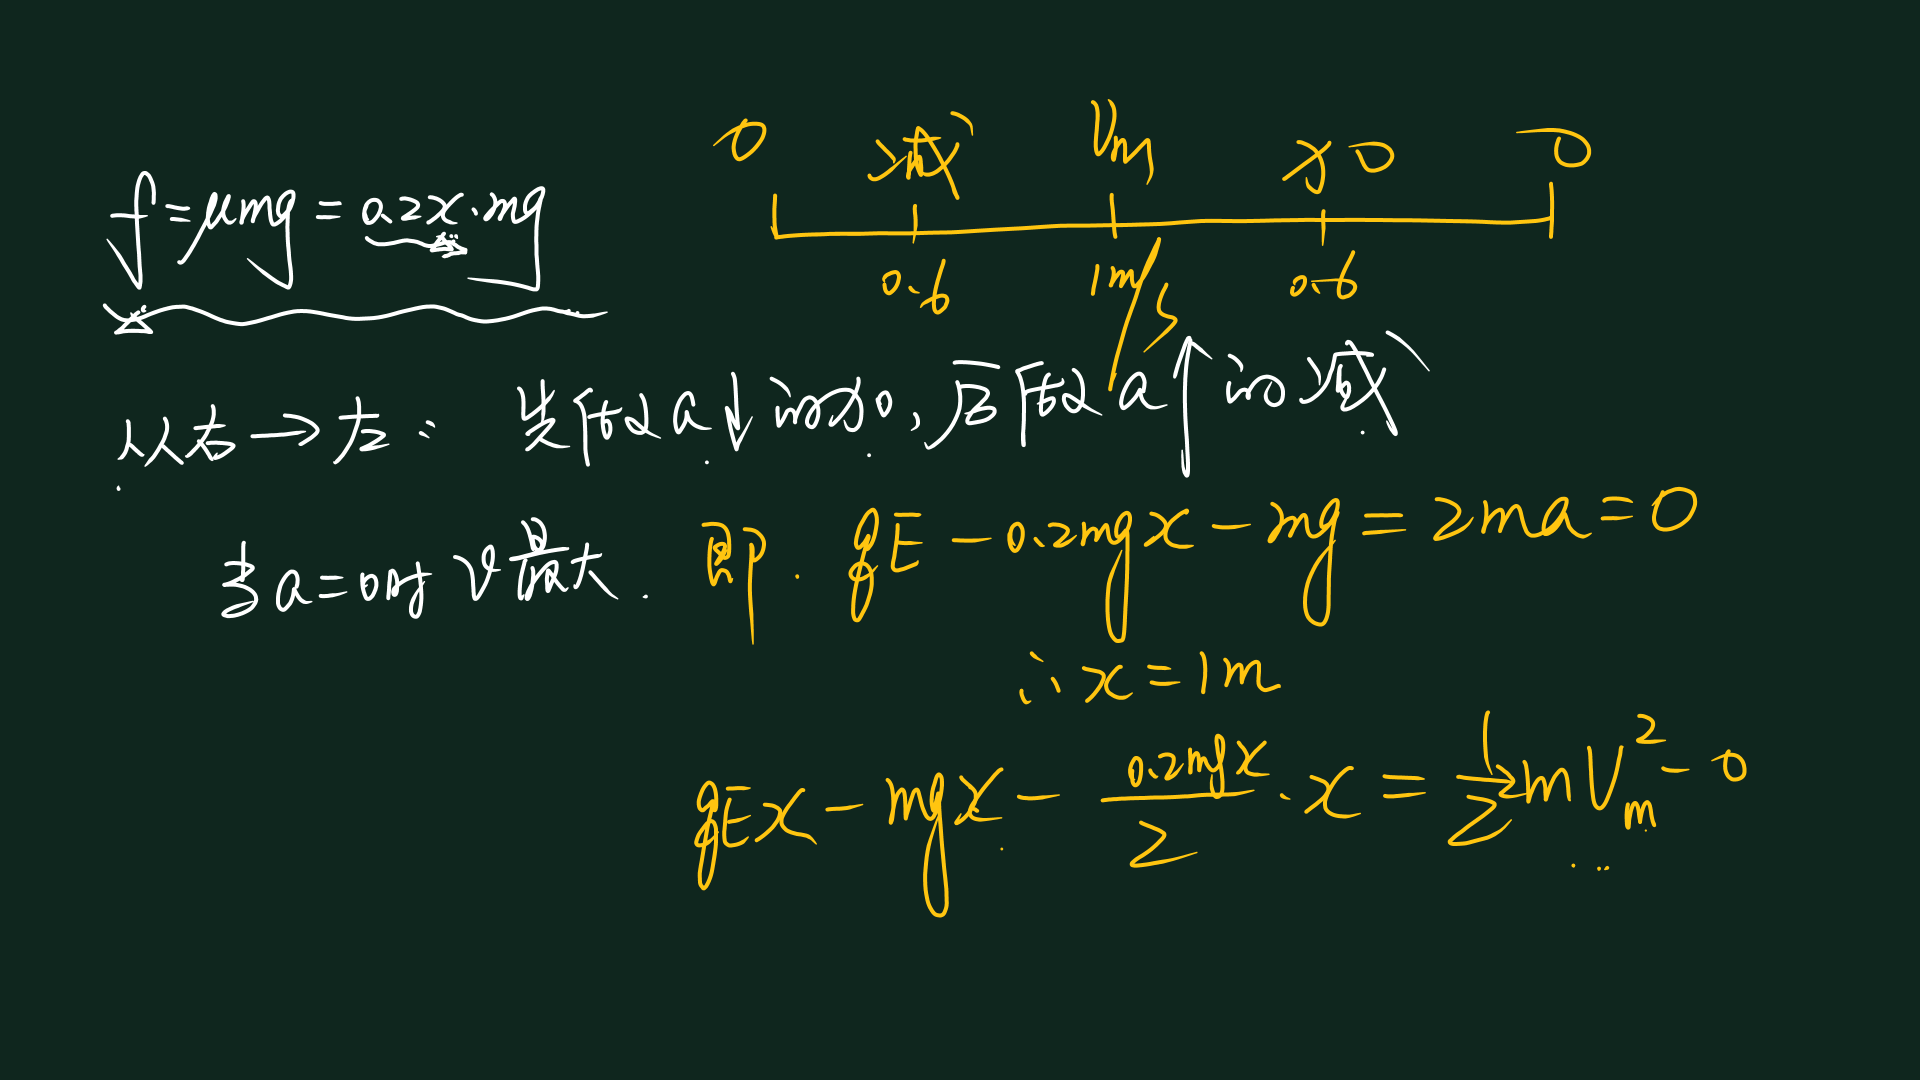 0 减 Vm 加 0
f=μmg=0.2x·mg
0.6 1m/s 0.6
从右→左: 先做a↓的加, 后做a↑的减
当a=0时 v最大. 即. qE-0.2mgx-mg=2ma=0
∴x=1m
qEx-mgx-\frac{0.2mgx}{2}·x=\frac{1}{2}2mVm²-0